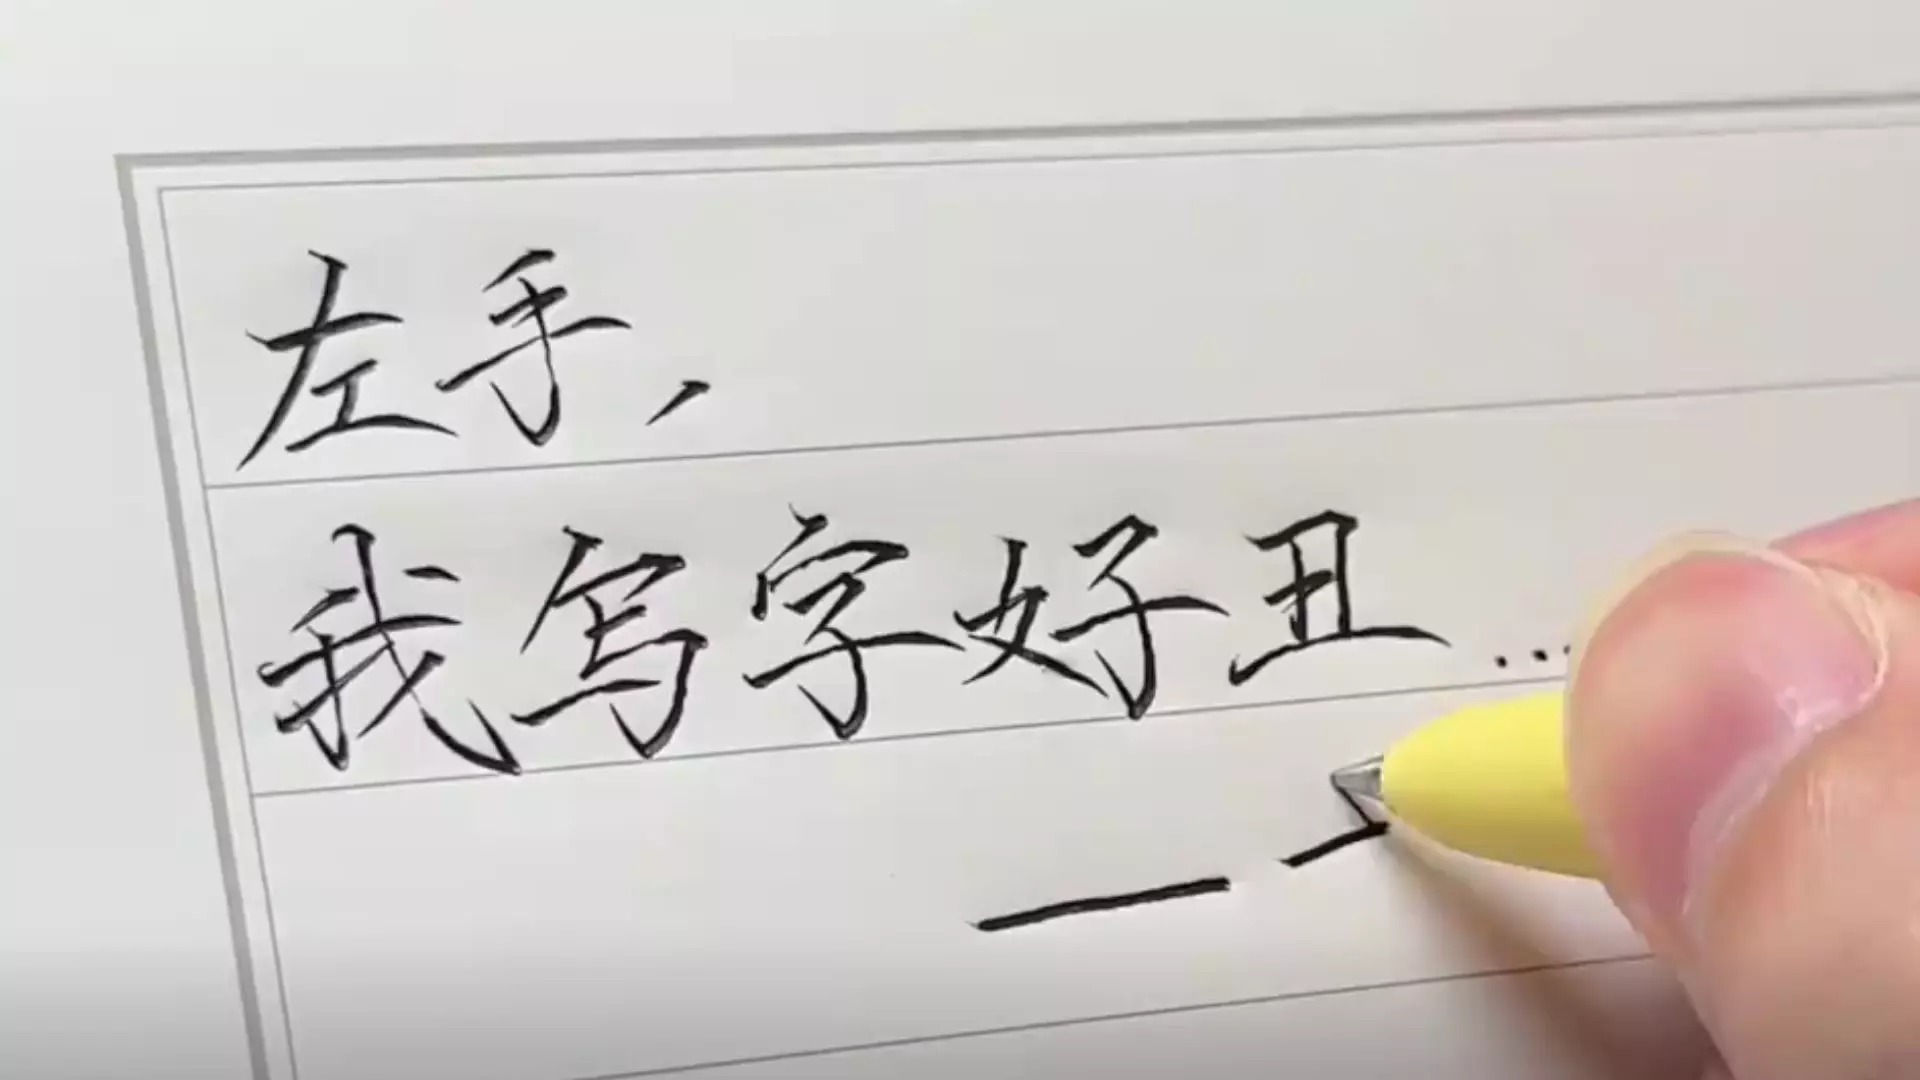 左手，
我写字好丑…
一